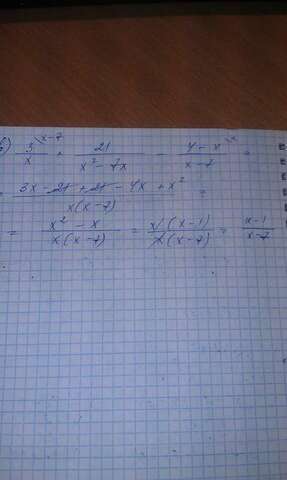 б) 3/x^(x-7) + 21/(x² - 7x) - (4 - x)^(x)/(x - 7) =
= (3x - 21 + 21 - 4x + x²)/(x(x-7)) =
= (x² - x)/(x(x-7)) = (x(x-1))/(x(x-7)) = (x-1)/(x-7)